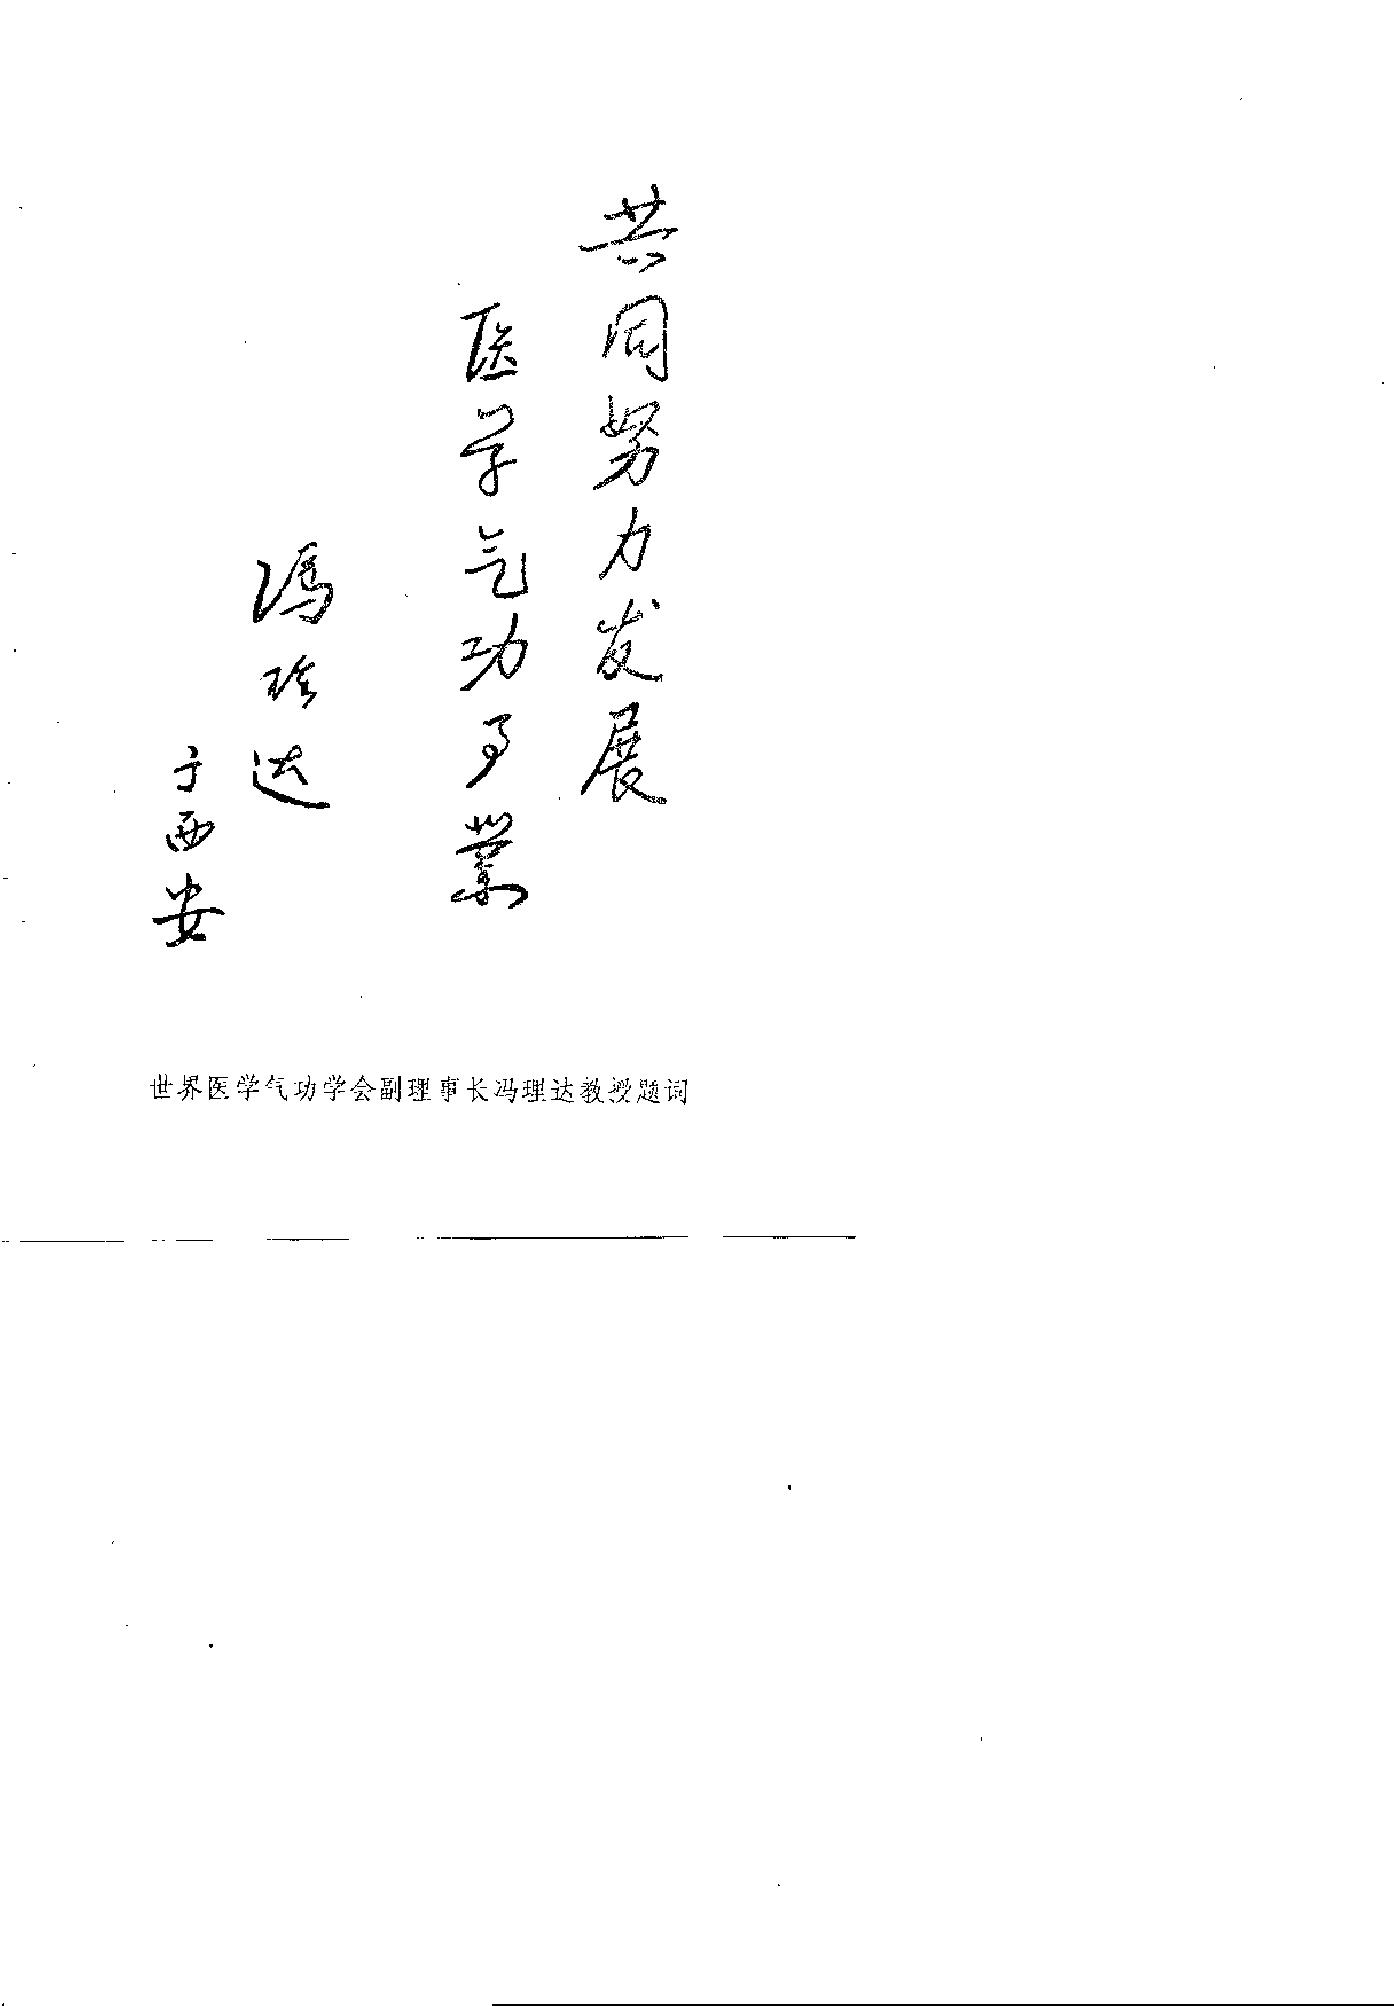 共同努力发展
医学气功事業
冯理达
于西安
世界医学气功学会副理事长冯理达教授题词